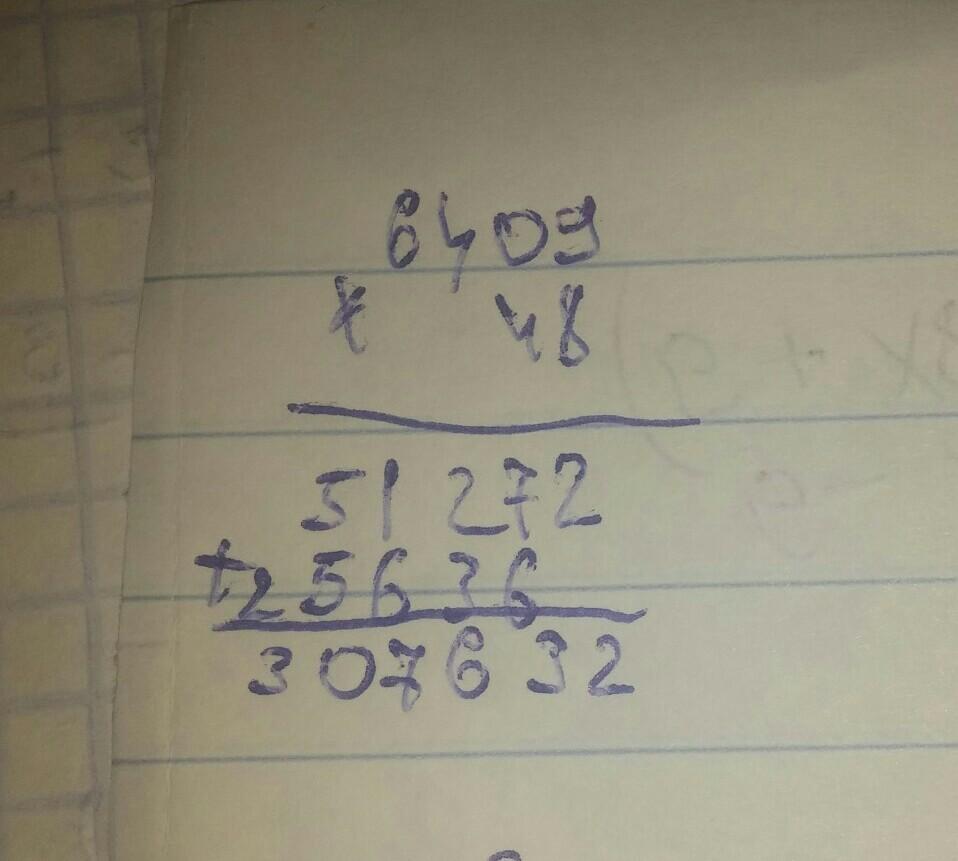 6409
× 48
51272
+25636
307632